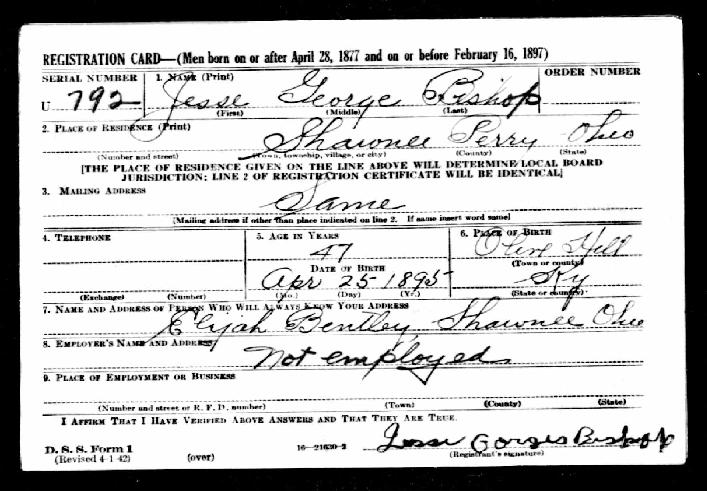 REGISTRATION CARD—(Men born on or after April 28, 1877 and on or before February 16, 1897)
SERIAL NUMBER 1. NAME (Print) ORDER NUMBER
U 792 Jesse George Bishop
(First) (Middle) (Last)
2. PLACE OF RESIDENCE (Print)
Shawnee Perry Ohio
(Number and street) (Town, township, village, or city) (County) (State)
[THE PLACE OF RESIDENCE GIVEN ON THE LINE ABOVE WILL DETERMINE LOCAL BOARD
JURISDICTION; LINE 2 OF REGISTRATION CERTIFICATE WILL BE IDENTICAL]
3. MAILING ADDRESS
Same
[Mailing address if other than place indicated on line 2. If same insert word same]
4. TELEPHONE 5. AGE IN YEARS 6. PLACE OF BIRTH
47 Olive Hill
DATE OF BIRTH (Town or county)
Apr 25 1895 Ky
(Exchange) (Number) (Mo.) (Day) (Yr.) (State or country)
7. NAME AND ADDRESS OF PERSON WHO WILL ALWAYS KNOW YOUR ADDRESS
Elijah Bentley, Shawnee Ohio
8. EMPLOYER'S NAME AND ADDRESS
Not employed
9. PLACE OF EMPLOYMENT OR BUSINESS
(Number and street or R. F. D. number) (Town) (County) (State)
I AFFIRM THAT I HAVE VERIFIED ABOVE ANSWERS AND THAT THEY ARE TRUE.
D. S. S. Form 1
(Revised 4-1-42) (over) 16—21630-2 Bishop
(Registrant's signature)